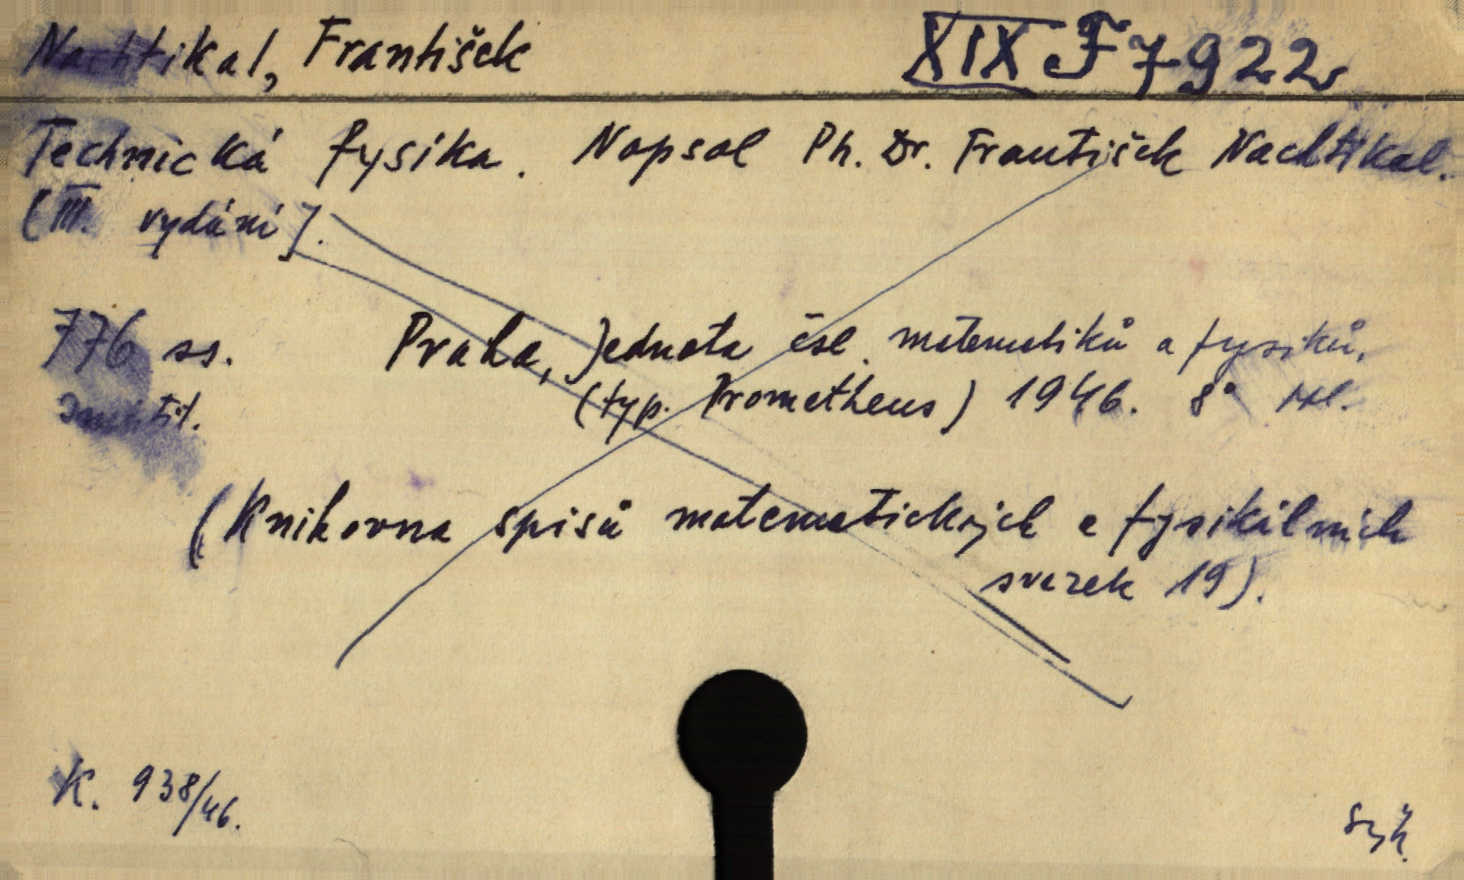 Nachtikal, František XIX F 7922
Technická fysika. Napsal Ph. Dr. František Nachtikal.
(III. vydání].
776 ss. Praha, Jednota čsl. matematiků a fysiků,
(typ. Prometheus) 1946. 8°
(Knihovna spisů matematických a fysikálních
svazek 19).
K. 938/46.